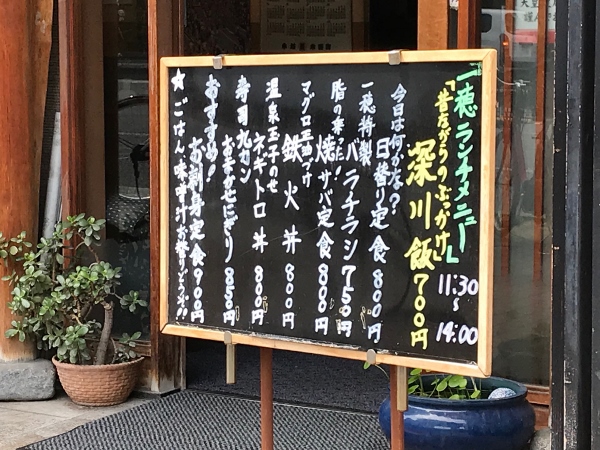 一穂ランチメニュー
11:30
~
14:00
「昔ながらのぶっかけ」
深川飯 700円
今日は何かな?
日替り定食 800円
一穂特製
バラチラシ 750円
脂の乗った!
焼サバ定食 800円
マグロ正油づけ
鉄火丼 800円
温泉玉子のせ
ネギトロ丼 800円
寿司九カン
おまかせにぎり 850円
おすすめ!
お刺身定食 900円
★ごはん味噌汁お替りどうぞ!!